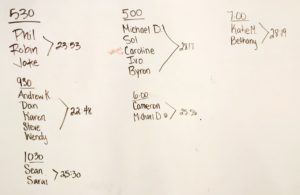 530
Phil
Robin
Jake
23:53
930
Andrew K
Dan
Karen
Steve
Wendy
22:48
1030
Sean
Sarai
25:30
500
Michael D
Sol
Caroline
Ivo
Byron
6:00
Cameron
Michael D
7:00
Kate M.
Bethany
28:19